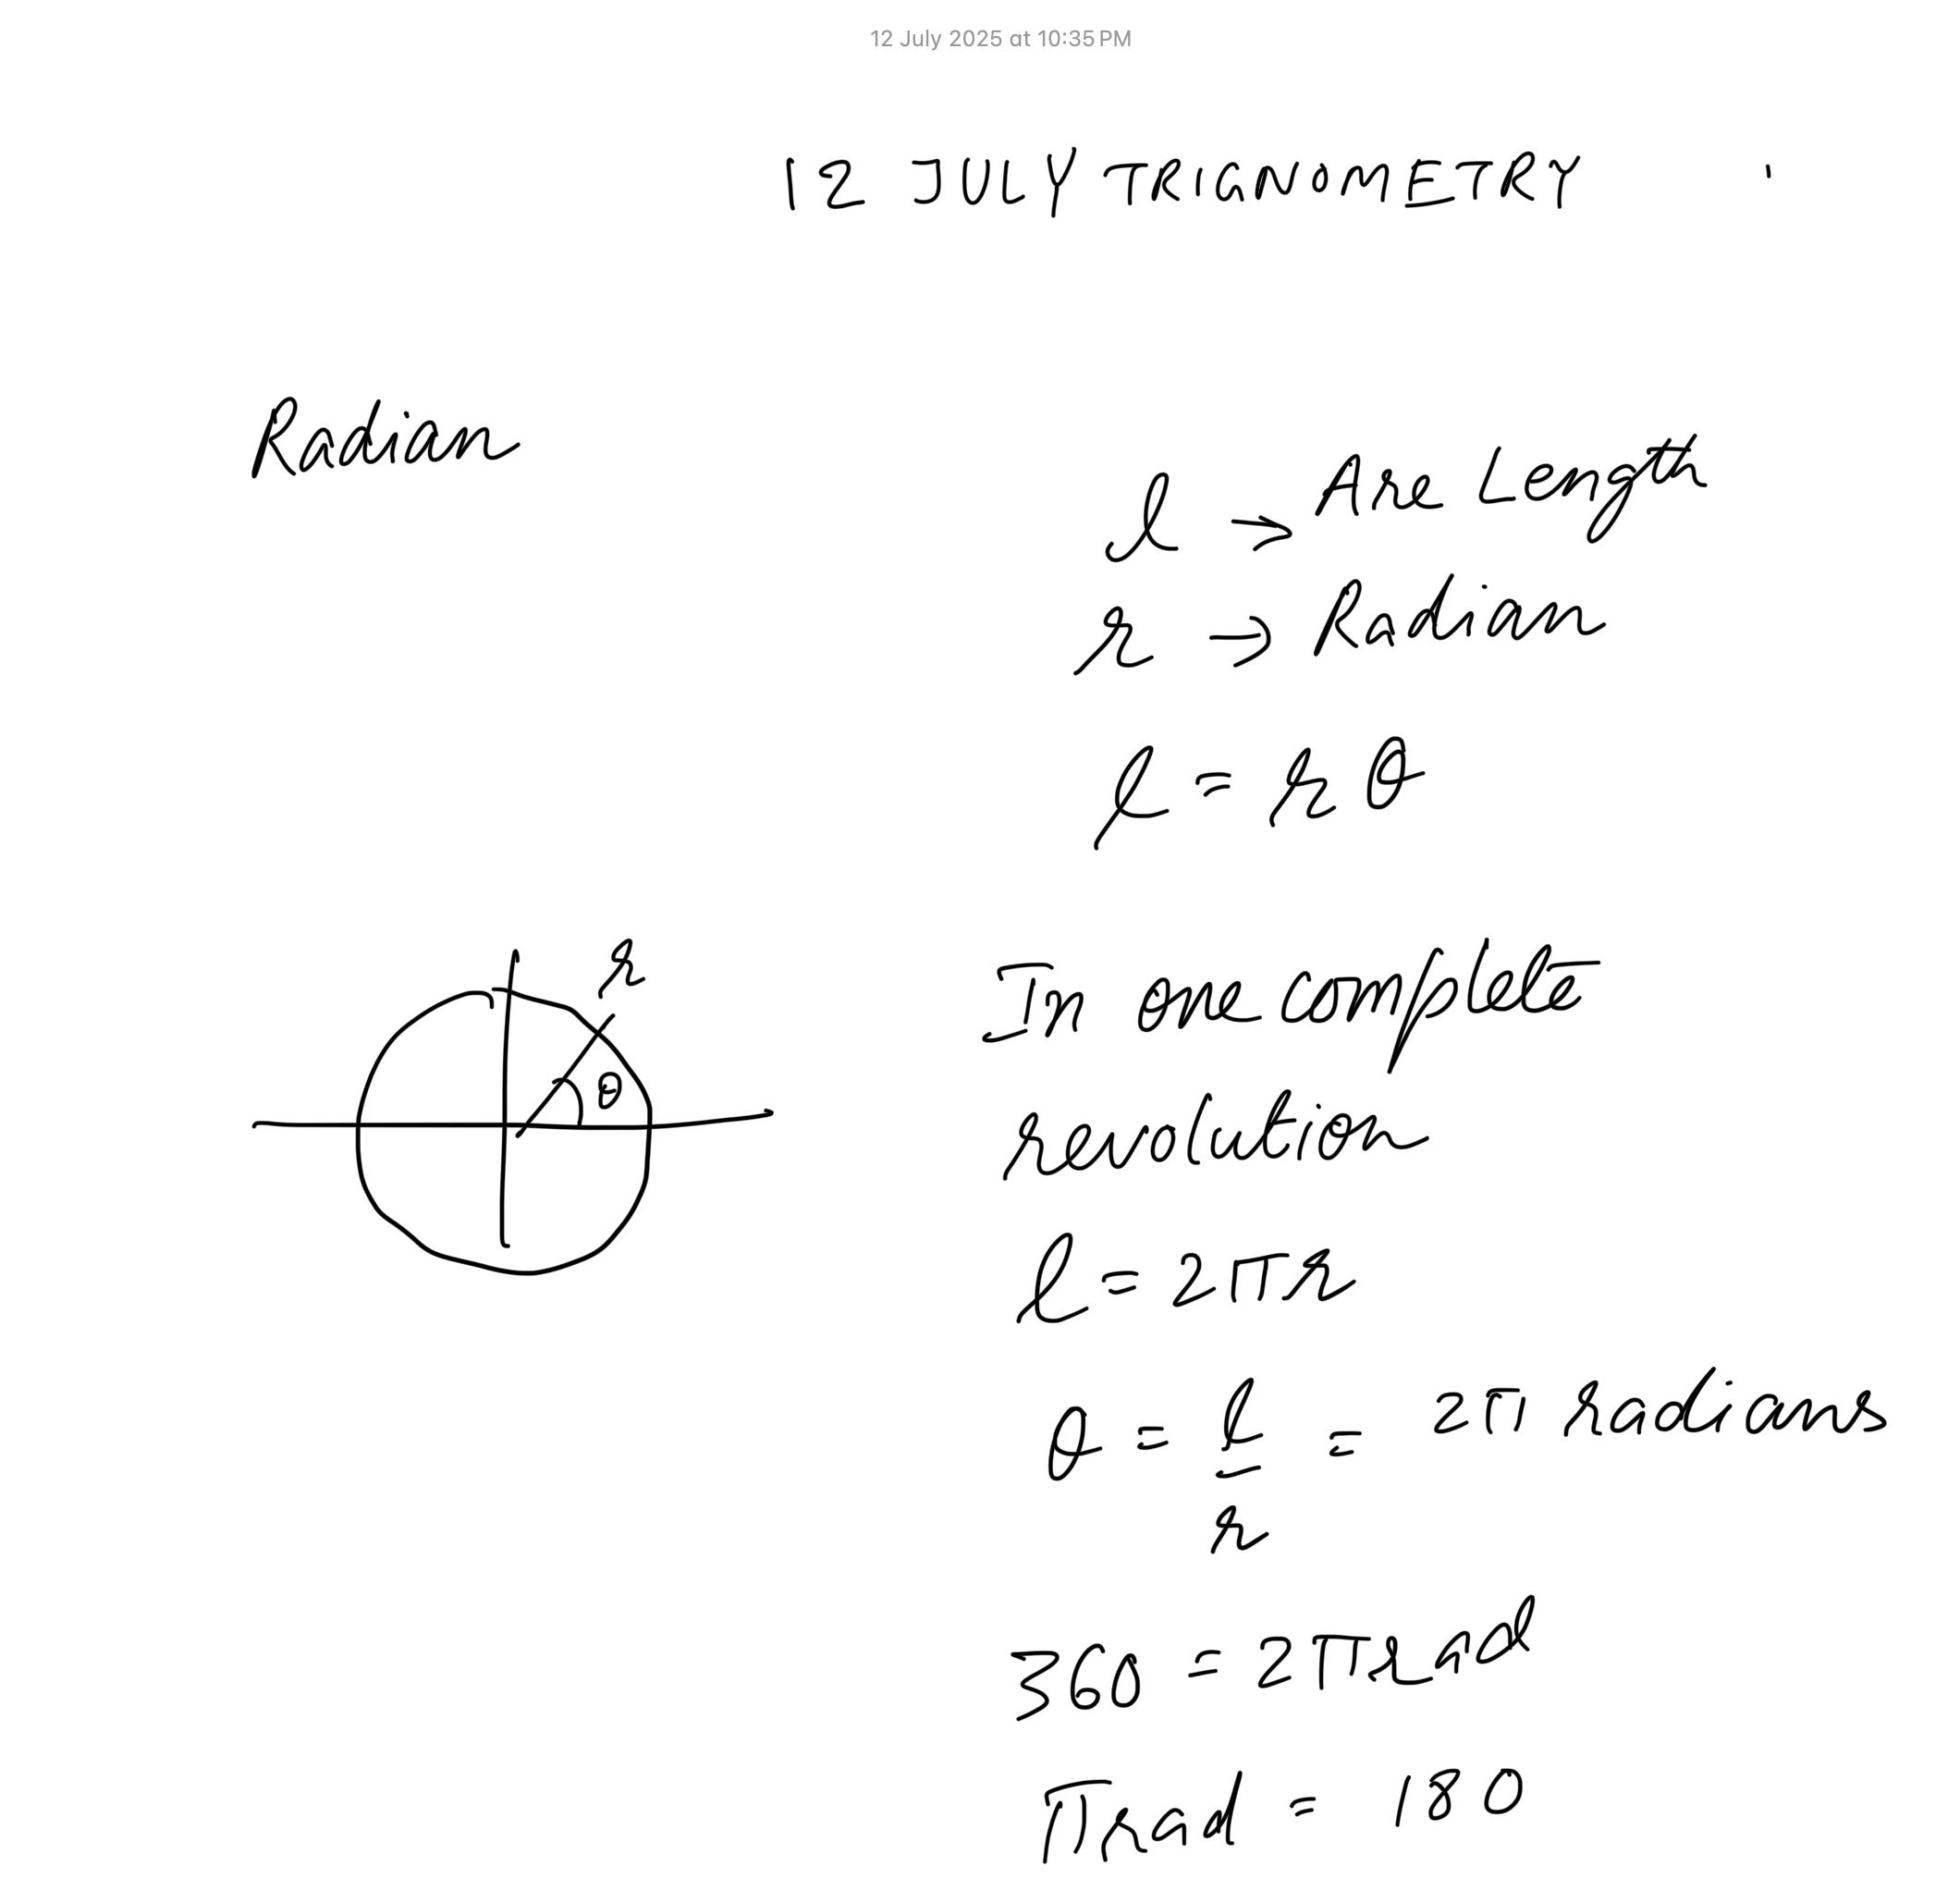 12 July 2025 at 10:35 PM
12 JULY TRIGNOMETRY
Radian
l → Arc Length
r → Radian
l = r θ
r
θ
In one complete
revolution
l = 2πr
θ = l/r = 2π radians
360 = 2π rad
π rad = 180